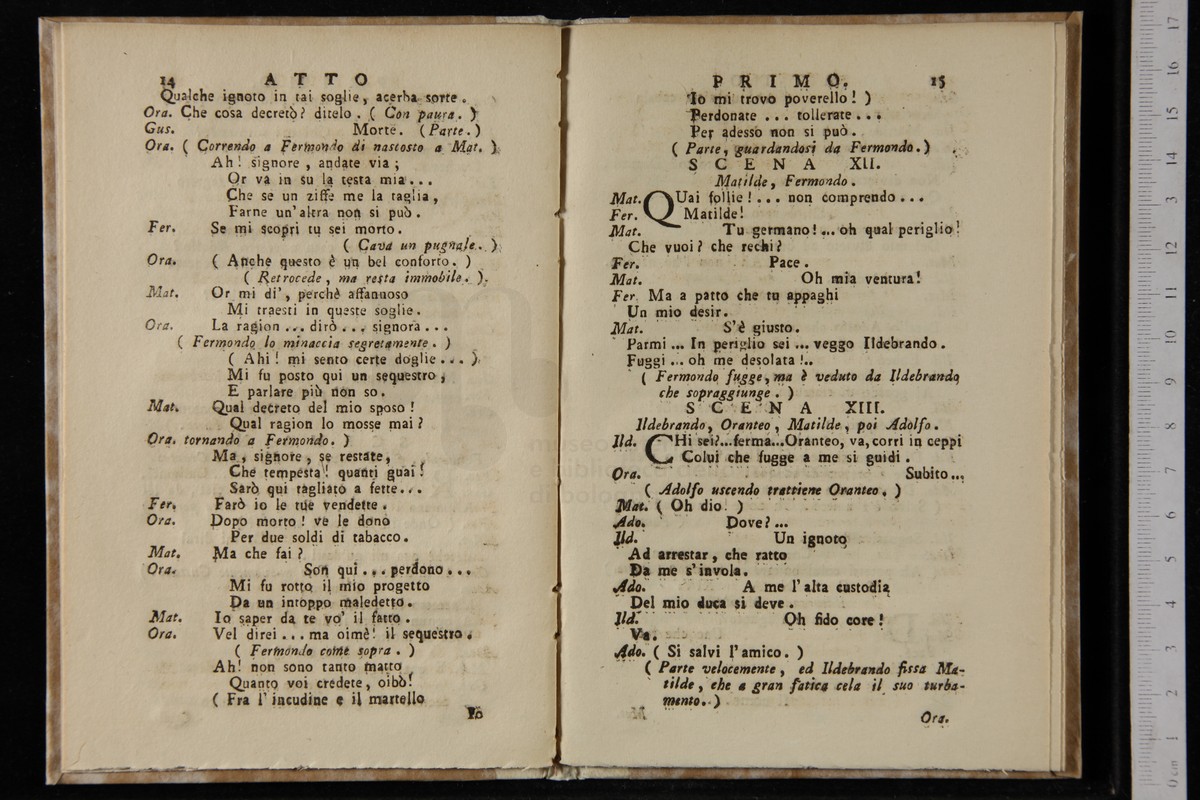 14 A T T O
Qualche ignoto in tai soglie, acerba sorte.
Ora. Che cosa decretò? ditelo. ( Con paura. )
Gus. Morte. ( Parte. )
Ora. ( Correndo a Fermondo di nascosto a Mat. )
Ah! signore, andate via;
Or va in su la testa mia...
Che se un ziffe me la taglia,
Farne un'altra non si può.
Fer. Se mi scopri tu sei morto.
( Cava un pugnale. )
Ora. ( Anche questo è un bel conforto. )
( Retrocede, ma resta immobile. )
Mat. Or mi di', perchè affannoso
Mi traesti in queste soglie.
Ora. La ragion... dirò... signora...
( Fermondo lo minaccia segretamente. )
( Ahi! mi sento certe doglie... )
Mi fu posto qui un sequestro,
E parlare più non so.
Mat. Qual decreto del mio sposo!
Qual ragion lo mosse mai?
Ora. tornando a Fermondo. )
Ma, signore, se restate,
Che tempesta! quanti guai!
Sarò qui tagliato a fette...
Fer. Farò io le tue vendette.
Ora. Dopo morto! ve le dono
Per due soldi di tabacco.
Mat. Ma che fai?
Ora. Son qui... perdono...
Mi fu rotto il mio progetto
Da un intoppo maledetto.
Mat. Io saper da te vo' il fatto.
Ora. Vel direi... ma oimè! il sequestro.
( Fermondo come sopra. )
Ah! non sono tanto matto
Quanto voi credete, oibò!
( Fra l'incudine e il martello
Io
P R I M O. 15
Io mi trovo poverello! )
Perdonate... tollerate...
Per adesso non si può.
( Parte, guardandosi da Fermondo. )
S C E N A XII.
Matilde, Fermondo.
Mat. QUai follie!... non comprendo...
Fer. Matilde!
Mat. Tu germano!... oh qual periglio!
Che vuoi? che rechi?
Fer. Pace.
Mat. Oh mia ventura!
Fer. Ma a patto che tu appaghi
Un mio desir.
Mat. S'è giusto.
Parmi... In periglio sei... veggo Ildebrando.
Fuggi... oh me desolata!..
( Fermondo fugge, ma è veduto da Ildebrando
che sopraggiunge. )
S C E N A XIII.
Ildebrando, Oranteo, Matilde, poi Adolfo.
Ild. CHi sei?...ferma...Oranteo, va, corri in ceppi
Colui che fugge a me si guidi.
Ora. Subito...
( Adolfo uscendo trattiene Oranteo. )
Mat. ( Oh dio! )
Ado. Dove?...
Ild. Un ignoto
Ad arrestar, che ratto
Da me s'invola.
Ado. A me l'alta custodia
Del mio duca si deve.
Ild. Oh fido core!
Va.
Ado. ( Si salvi l'amico. )
( Parte velocemente, ed Ildebrando fissa Ma-
tilde, che a gran fatica cela il suo turba-
mento. )
Ora.